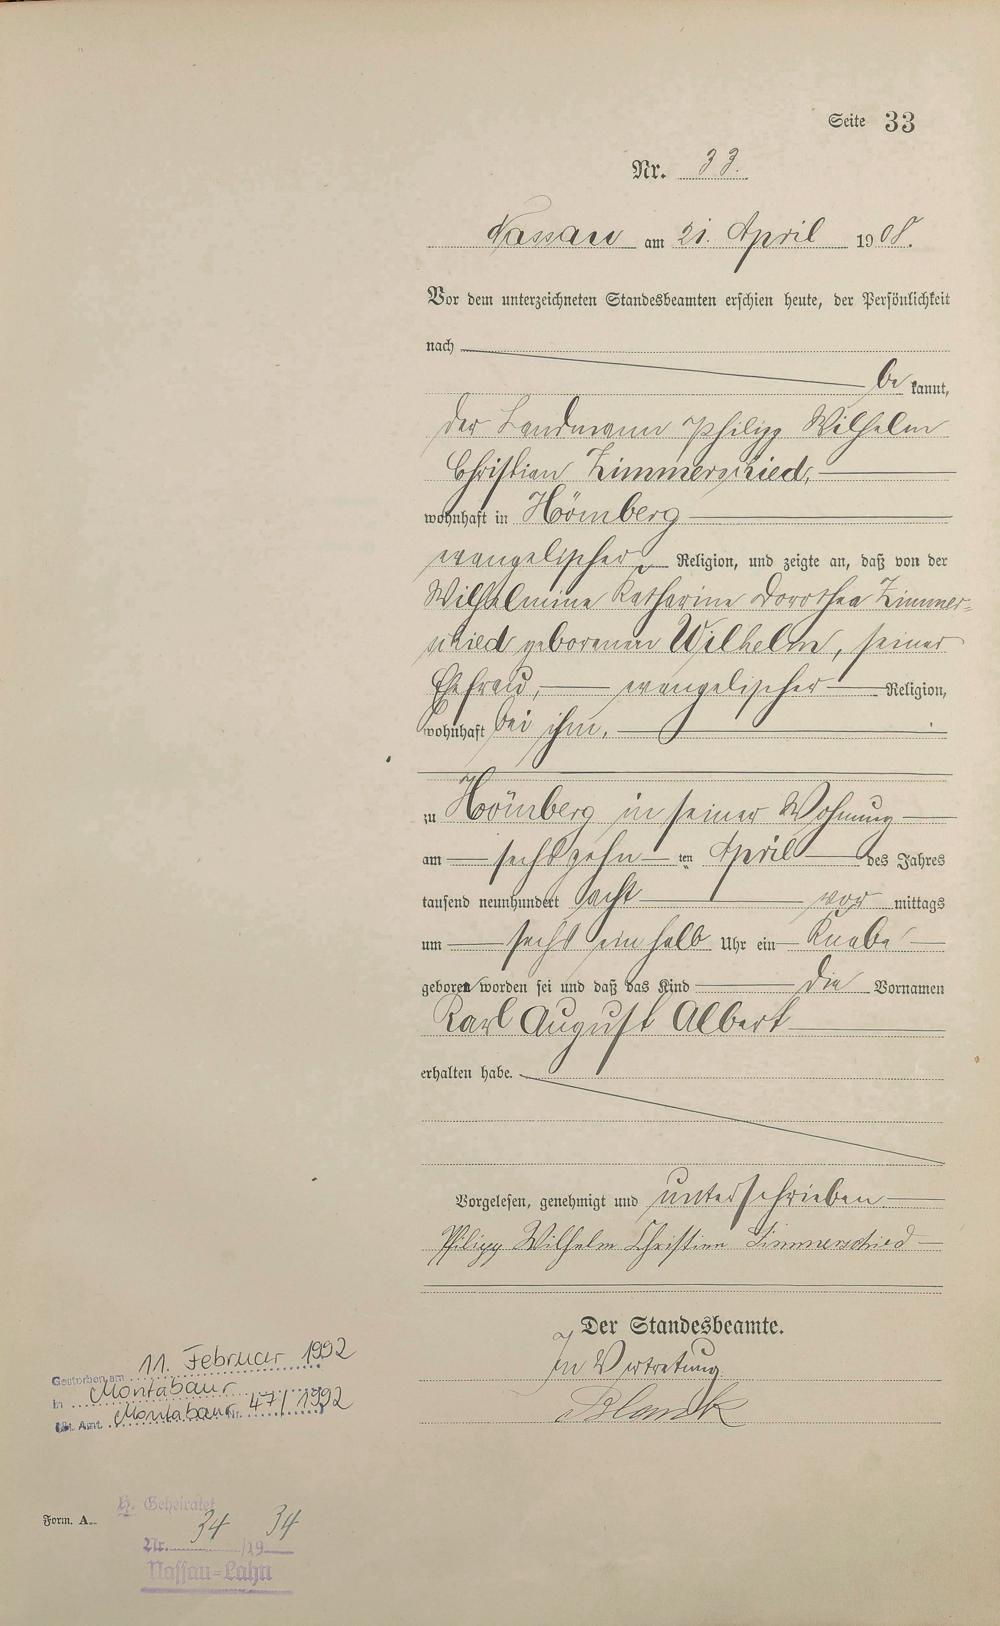 Seite 33
Nr. 33.
Nassau am 21. April 1908.
Vor dem unterzeichneten Standesbeamten erschien heute, der Persönlichkeit
nach
be kannt,
der Landmann Philipp Wilhelm
Christian Zimmerschied,
wohnhaft in Hömberg
evangelischer Religion, und zeigte an, daß von der
Wilhelmine Katharine Dorothea Zimmer-
schied geborenen Wilhelm, seiner
Ehefrau, evangelischer Religion,
wohnhaft bei ihm,
zu Hömberg in seiner Wohnung
am sechszehn ten April des Jahres
tausend neunhundert acht vor mittags
um sechs ein halb Uhr ein Knabe
geboren worden sei und daß das Kind die Vornamen
Karl August Albert
erhalten habe.
Vorgelesen, genehmigt und unterschrieben
Philipp Wilhelm Christian Zimmerschied
Der Standesbeamte.
In Vertretung
Blank
Gestorben am 11. Februar 1992
in Montabaur
St. Amt. Montabaur Nr. 47/1992
Form. A.
Geheiratet
Nr. 34 /19 34
Nassau-Lahn